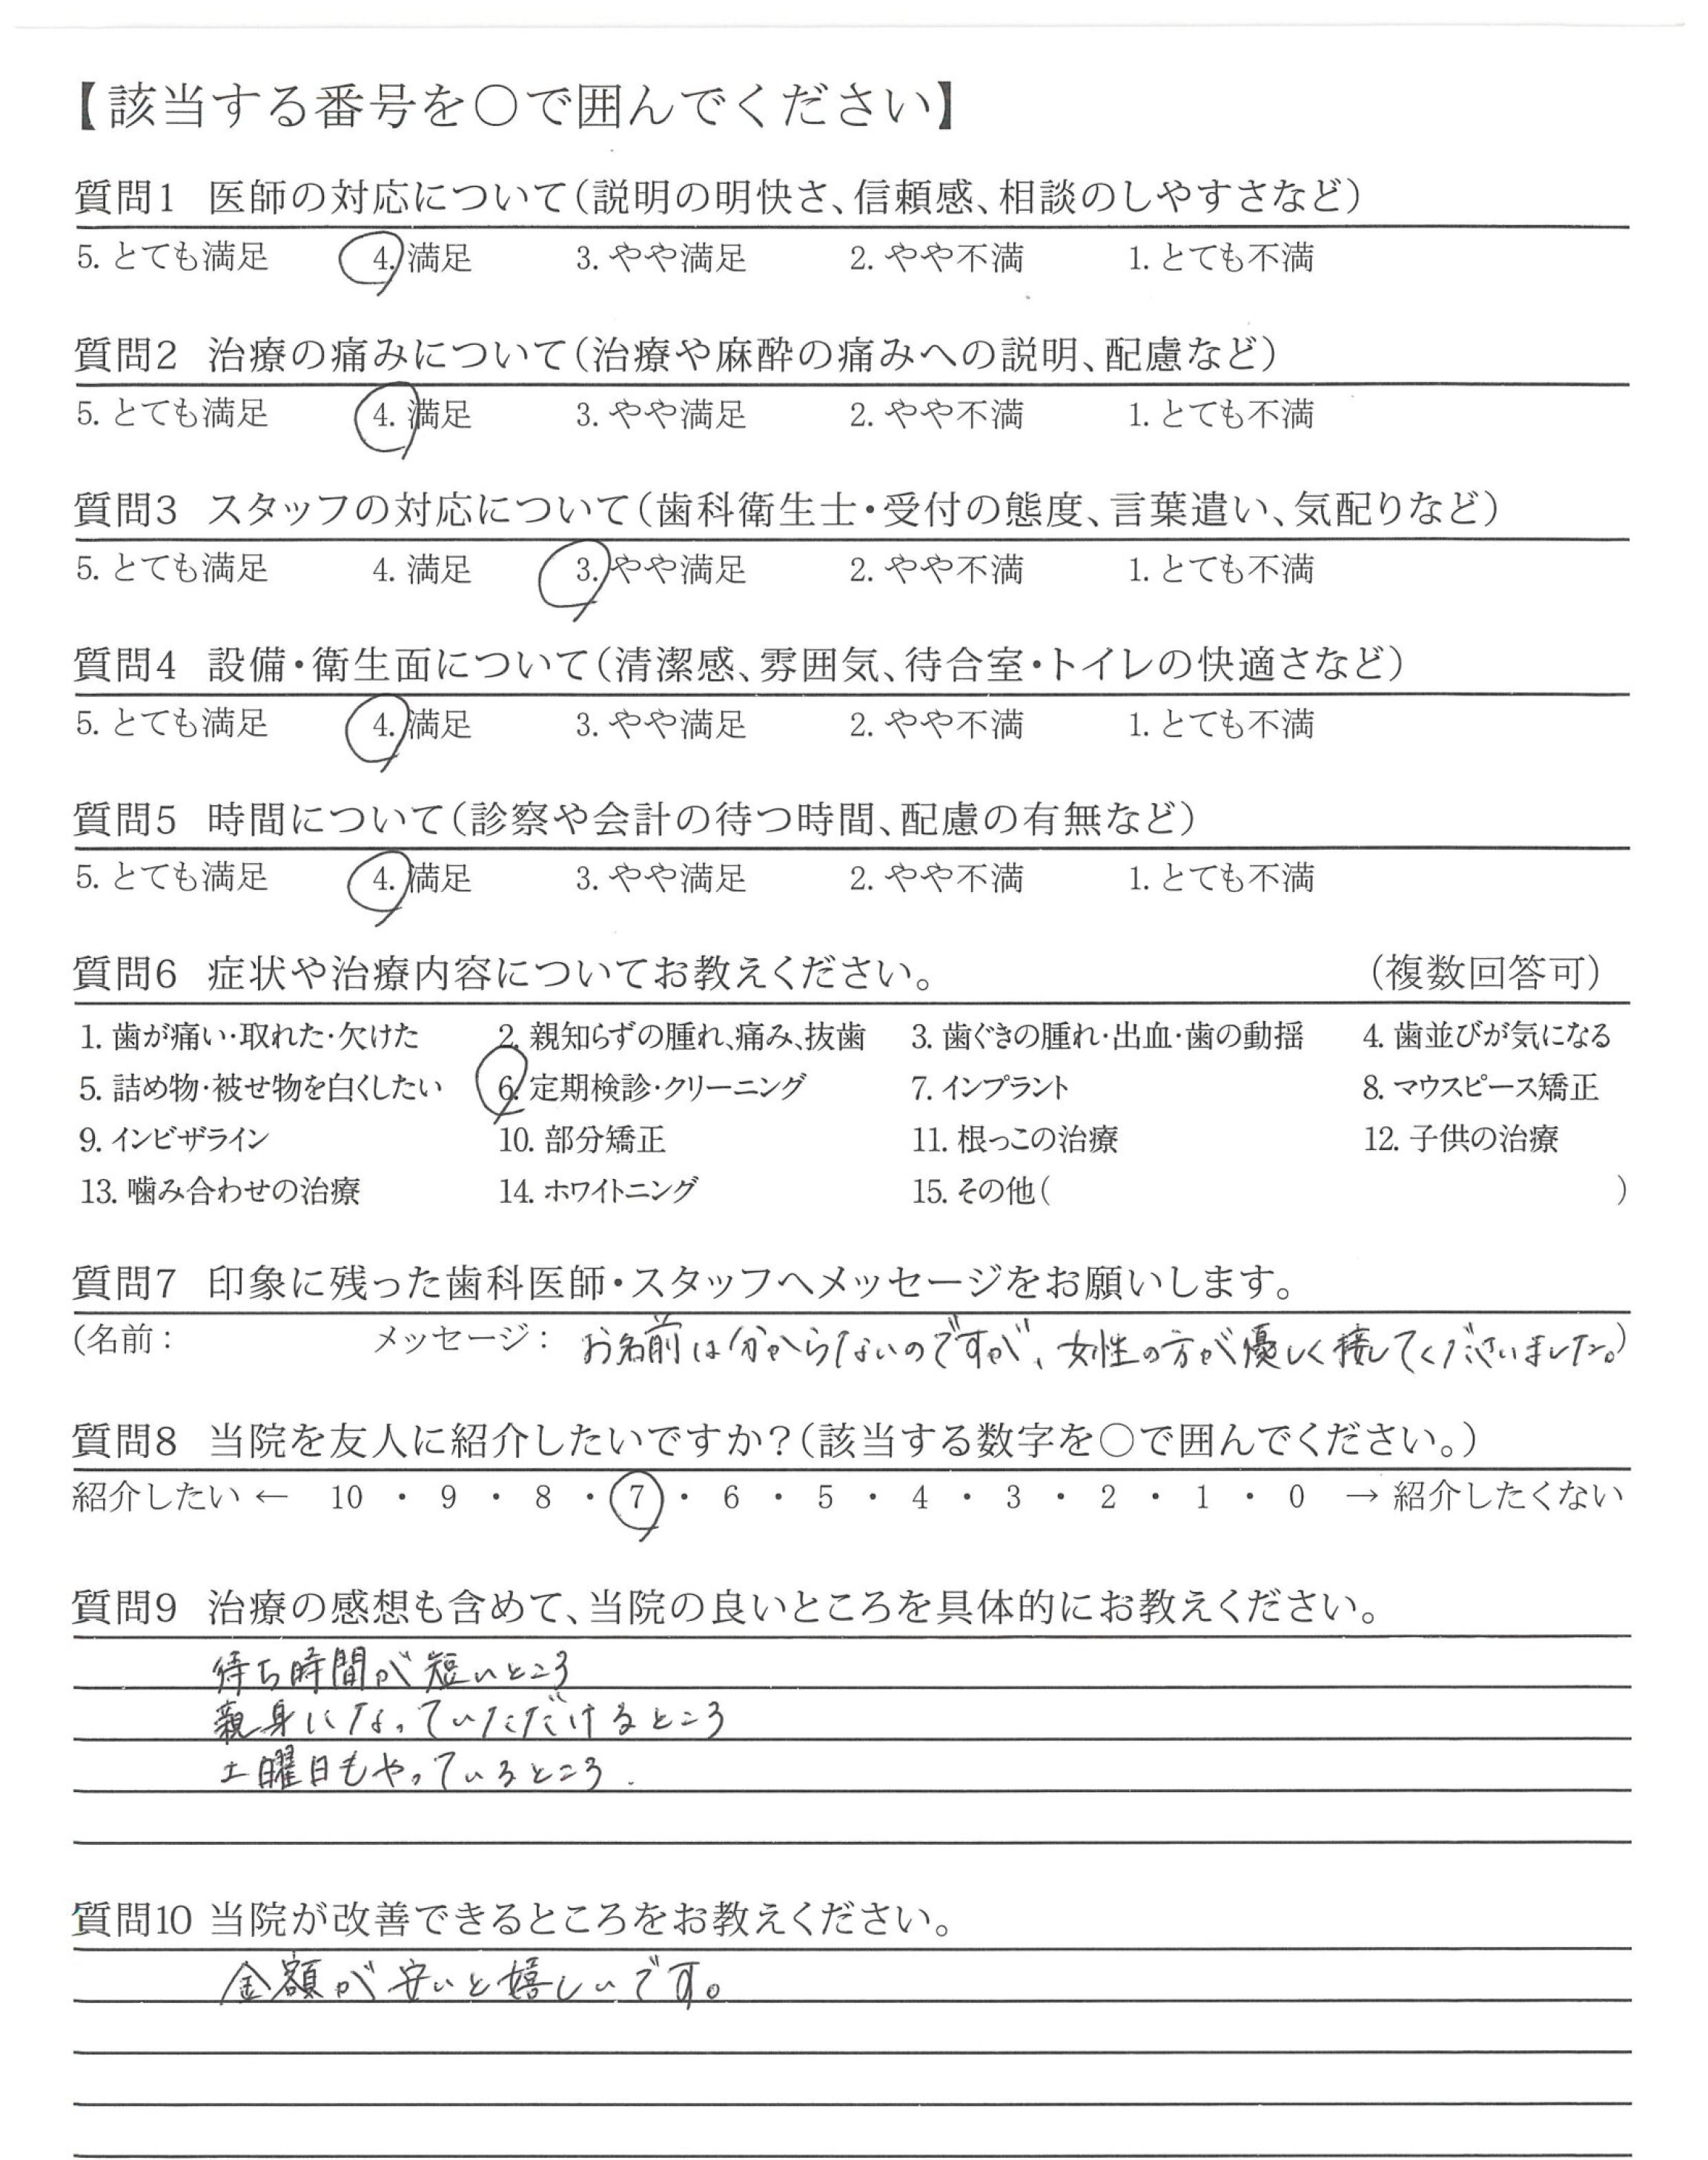 【該当する番号を〇で囲んでください】
質問1 医師の対応について(説明の明快さ、信頼感、相談のしやすさなど)
5. とても満足 4. 満足 3. やや満足 2. やや不満 1. とても不満
質問2 治療の痛みについて(治療や麻酔の痛みへの説明、配慮など)
5. とても満足 4. 満足 3. やや満足 2. やや不満 1. とても不満
質問3 スタッフの対応について(歯科衛生士・受付の態度、言葉遣い、気配りなど)
5. とても満足 4. 満足 3. やや満足 2. やや不満 1. とても不満
質問4 設備・衛生面について(清潔感、雰囲気、待合室・トイレの快適さなど)
5. とても満足 4. 満足 3. やや満足 2. やや不満 1. とても不満
質問5 時間について(診察や会計の待つ時間、配慮の有無など)
5. とても満足 4. 満足 3. やや満足 2. やや不満 1. とても不満
質問6 症状や治療内容についてお教えください。 (複数回答可)
1. 歯が痛い・取れた・欠けた 2. 親知らずの腫れ、痛み、抜歯 3. 歯ぐきの腫れ・出血・歯の動揺 4. 歯並びが気になる
5. 詰め物・被せ物を白くしたい 6. 定期検診・クリーニング 7. インプラント 8. マウスピース矯正
9. インビザライン 10. 部分矯正 11. 根っこの治療 12. 子供の治療
13. 噛み合わせの治療 14. ホワイトニング 15. その他( )
質問7 印象に残った歯科医師・スタッフへメッセージをお願いします。
(名前: メッセージ: お名前は分からないのですが、女性の方が優しく接してくださいました。)
質問8 当院を友人に紹介したいですか?(該当する数字を〇で囲んでください。)
紹介したい ← 10 ・ 9 ・ 8 ・ 7 ・ 6 ・ 5 ・ 4 ・ 3 ・ 2 ・ 1 ・ 0 → 紹介したくない
質問9 治療の感想も含めて、当院の良いところを具体的にお教えください。
待ち時間が短いところ
親身になっていただけるところ
土曜日もやっているところ.
質問10 当院が改善できるところをお教えください。
金額が安いと嬉しいです。